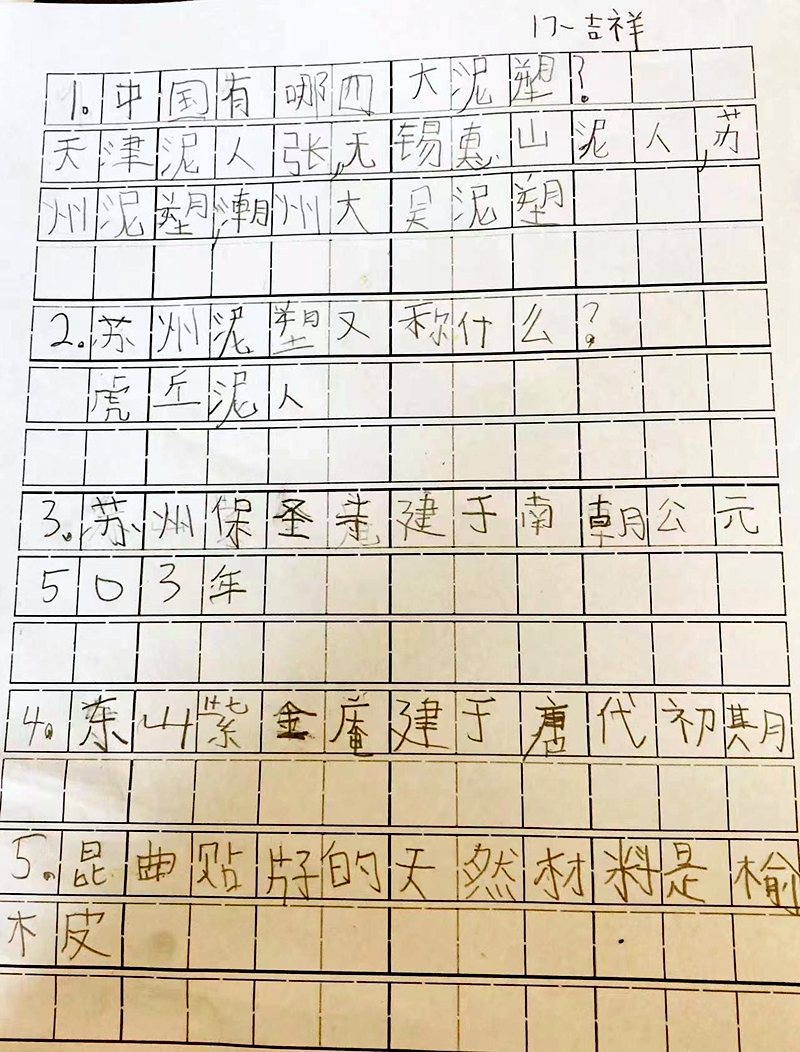 17~吉祥
1。中国有哪四大泥塑?
天津泥人张,无锡惠山泥人,苏
州泥塑,潮州大吴泥塑
2。苏州泥塑又称什么?
虎丘泥人
3。苏州保圣寺建于南朝公元
503年
4。东山紫金庵建于唐代初期
5。昆曲贴片子的天然材料是榆
木皮